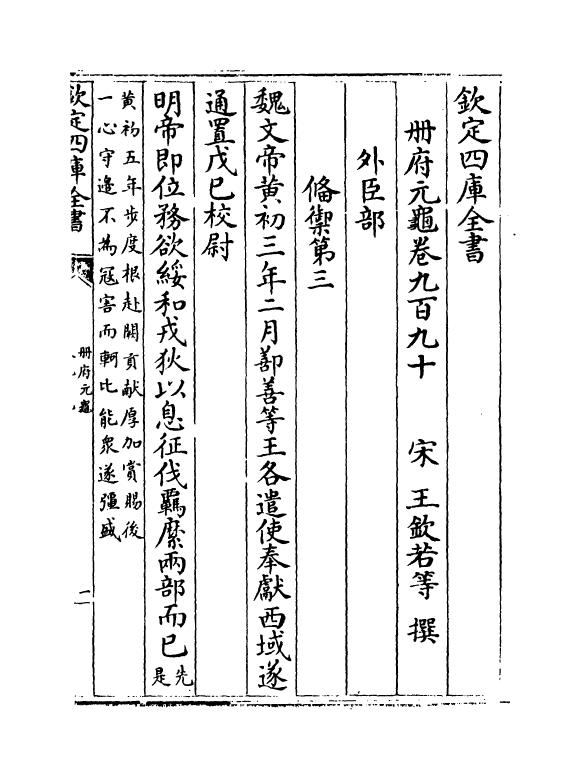 欽定四庫全書
册府元龜卷九百九十　宋　王欽若等　撰
外臣部
備禦第三
魏文帝黃初三年二月鄯善等王各遣使奉獻西域遂
通置戊巳校尉
明帝即位務欲綏和戎狄以息征伐羈縻兩部而已先是
黃初五年步度根赴闕貢獻厚加賞賜後
一心守邊不為冦害而軻比能衆遂彊盛
欽定四庫全書
册府元龜
一